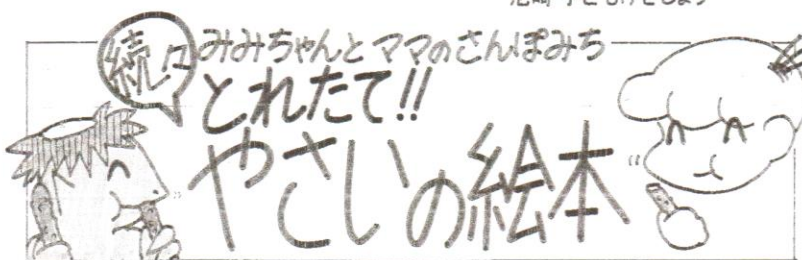 続々
みみちゃんとママのさんぽみち
とれたて!!
やさいの絵本